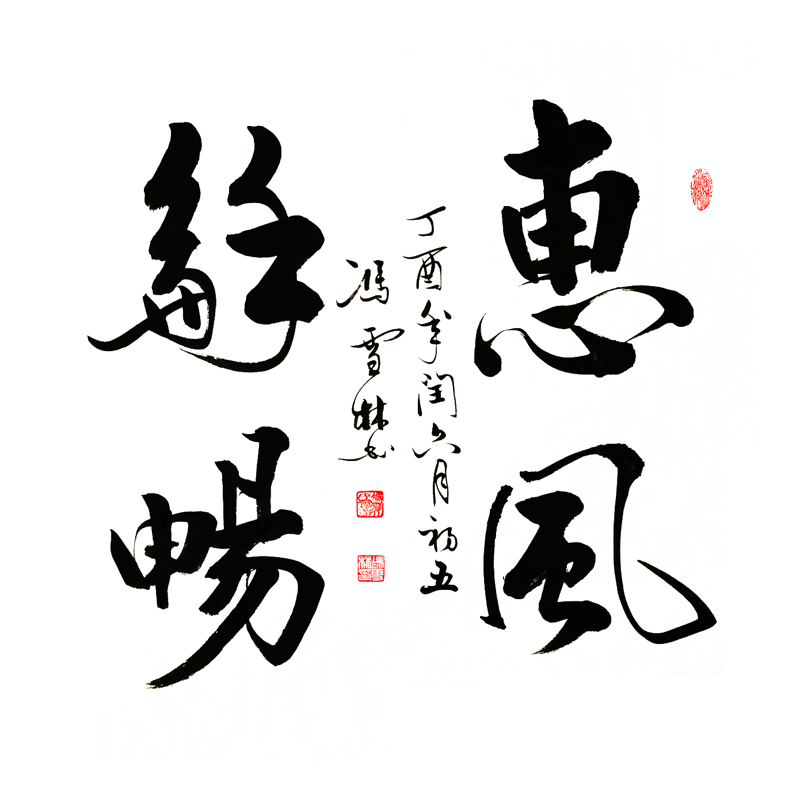 惠風
龢暢
丁酉年閏六月初五
馮雪林书